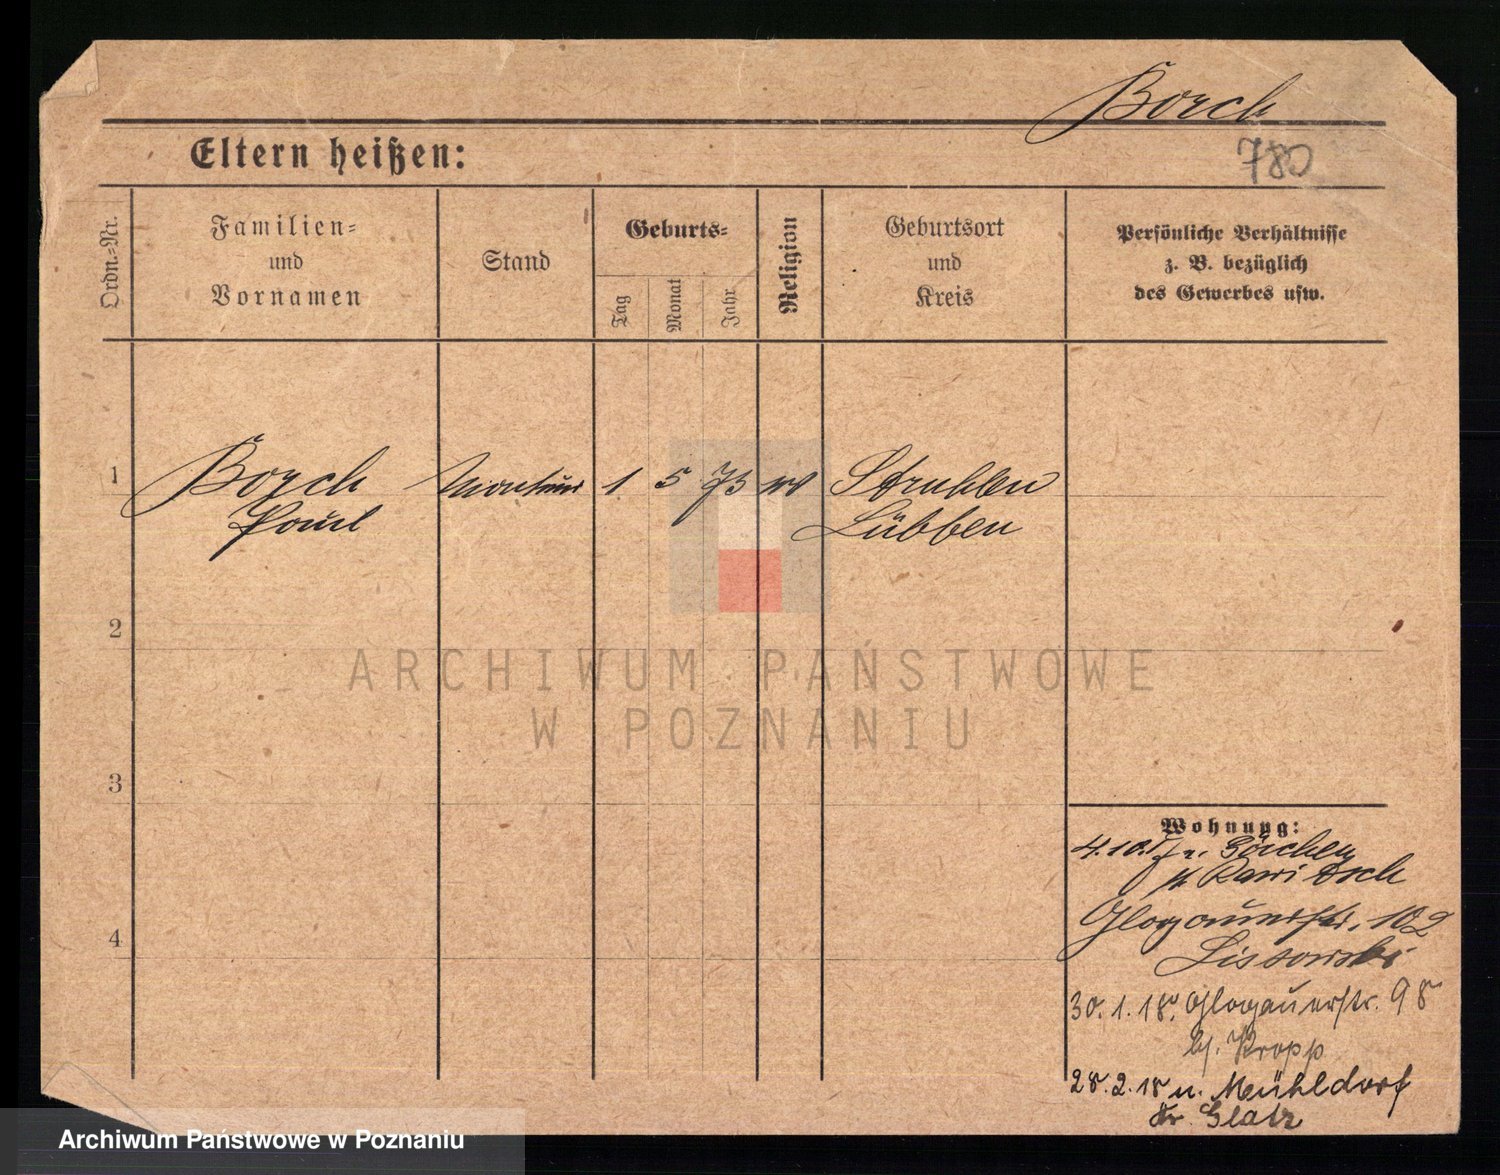 Borch
Eltern heißen:
780
Ordn.-Nr.
Familien=
und
Vornamen
Stand
Geburts=
Tag
Monat
Jahr
Religion
Geburtsort
und
Kreis
Persönliche Verhältnisse
z. B. bezüglich
des Gewerbes usw.
1
Borch
Paul
Monteur
1 5 73
Lübben
2
3
4
Wohnung:
4.10.17 v. Görchen
Kr Rawitsch
Glogauerstr. 102
Lissowski
30.1.18. Glogauerstr. 98
bj. Kropp
28.2.18 n. Mühldorf
Kr. Glatz
ARCHIWUM PAŃSTWOWE
W POZNANIU
Archiwum Państwowe w Poznaniu